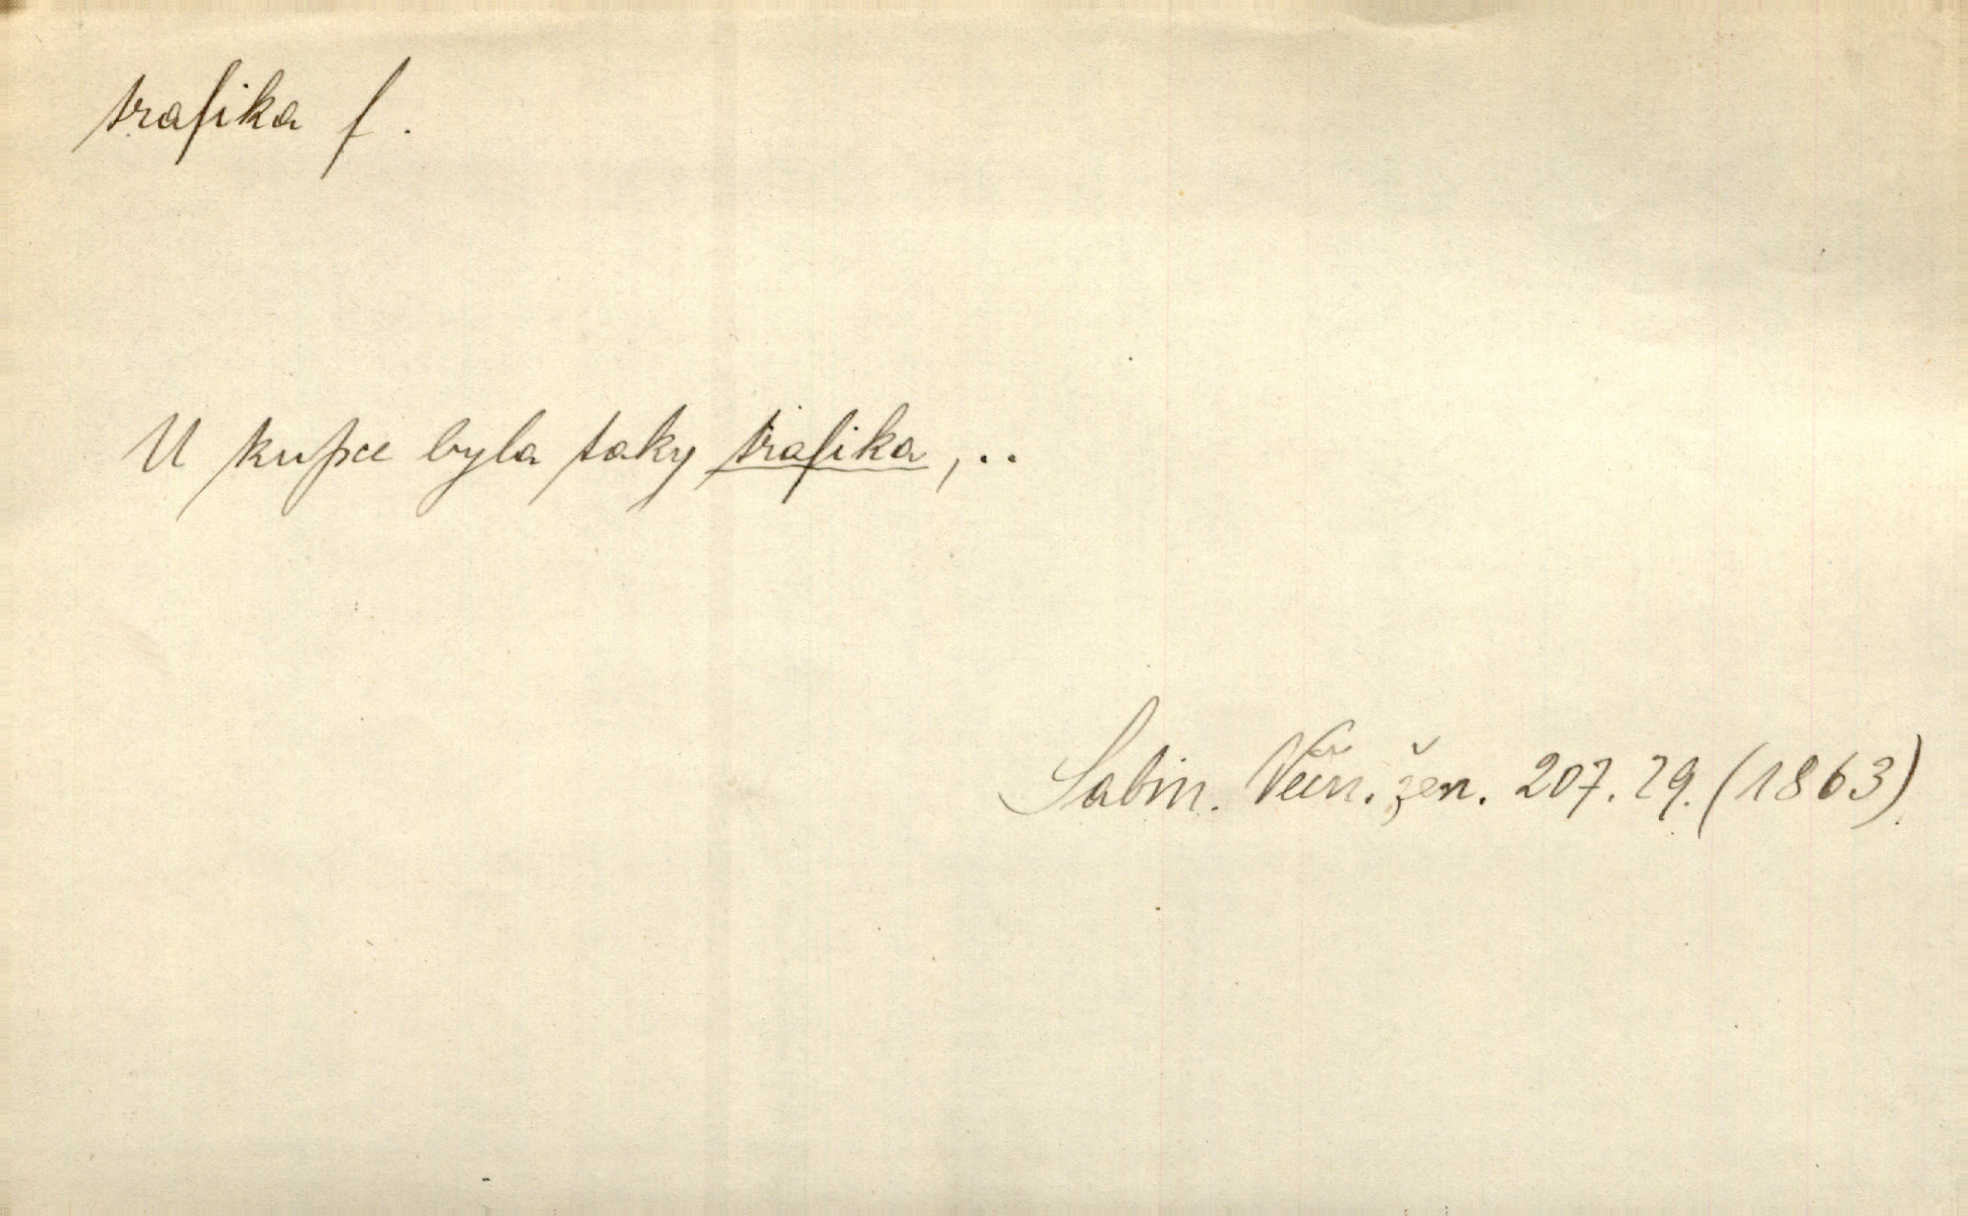 trafika f.
U kupce byla taky trafika, ..
Sabin. Věčn. žen. 207. 29. (1863)